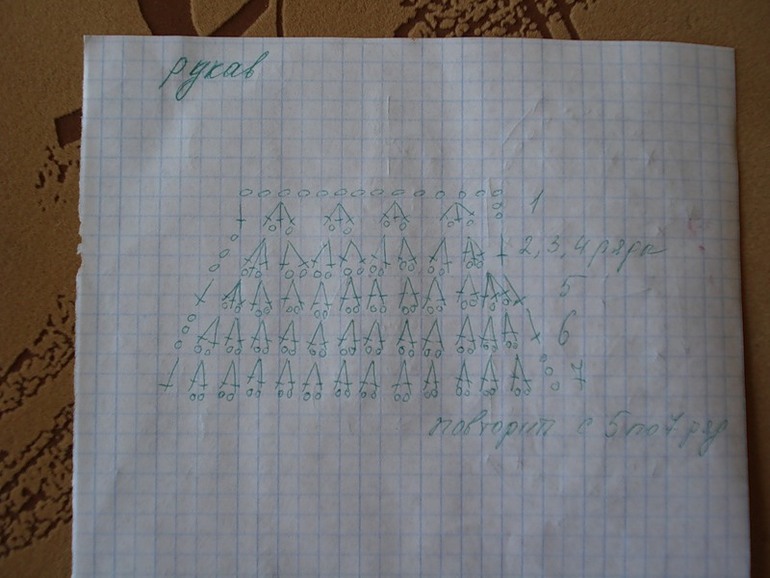 рукав
1
2, 3, 4 ряды
5
6
7
повторит с 5 по 7 ряд